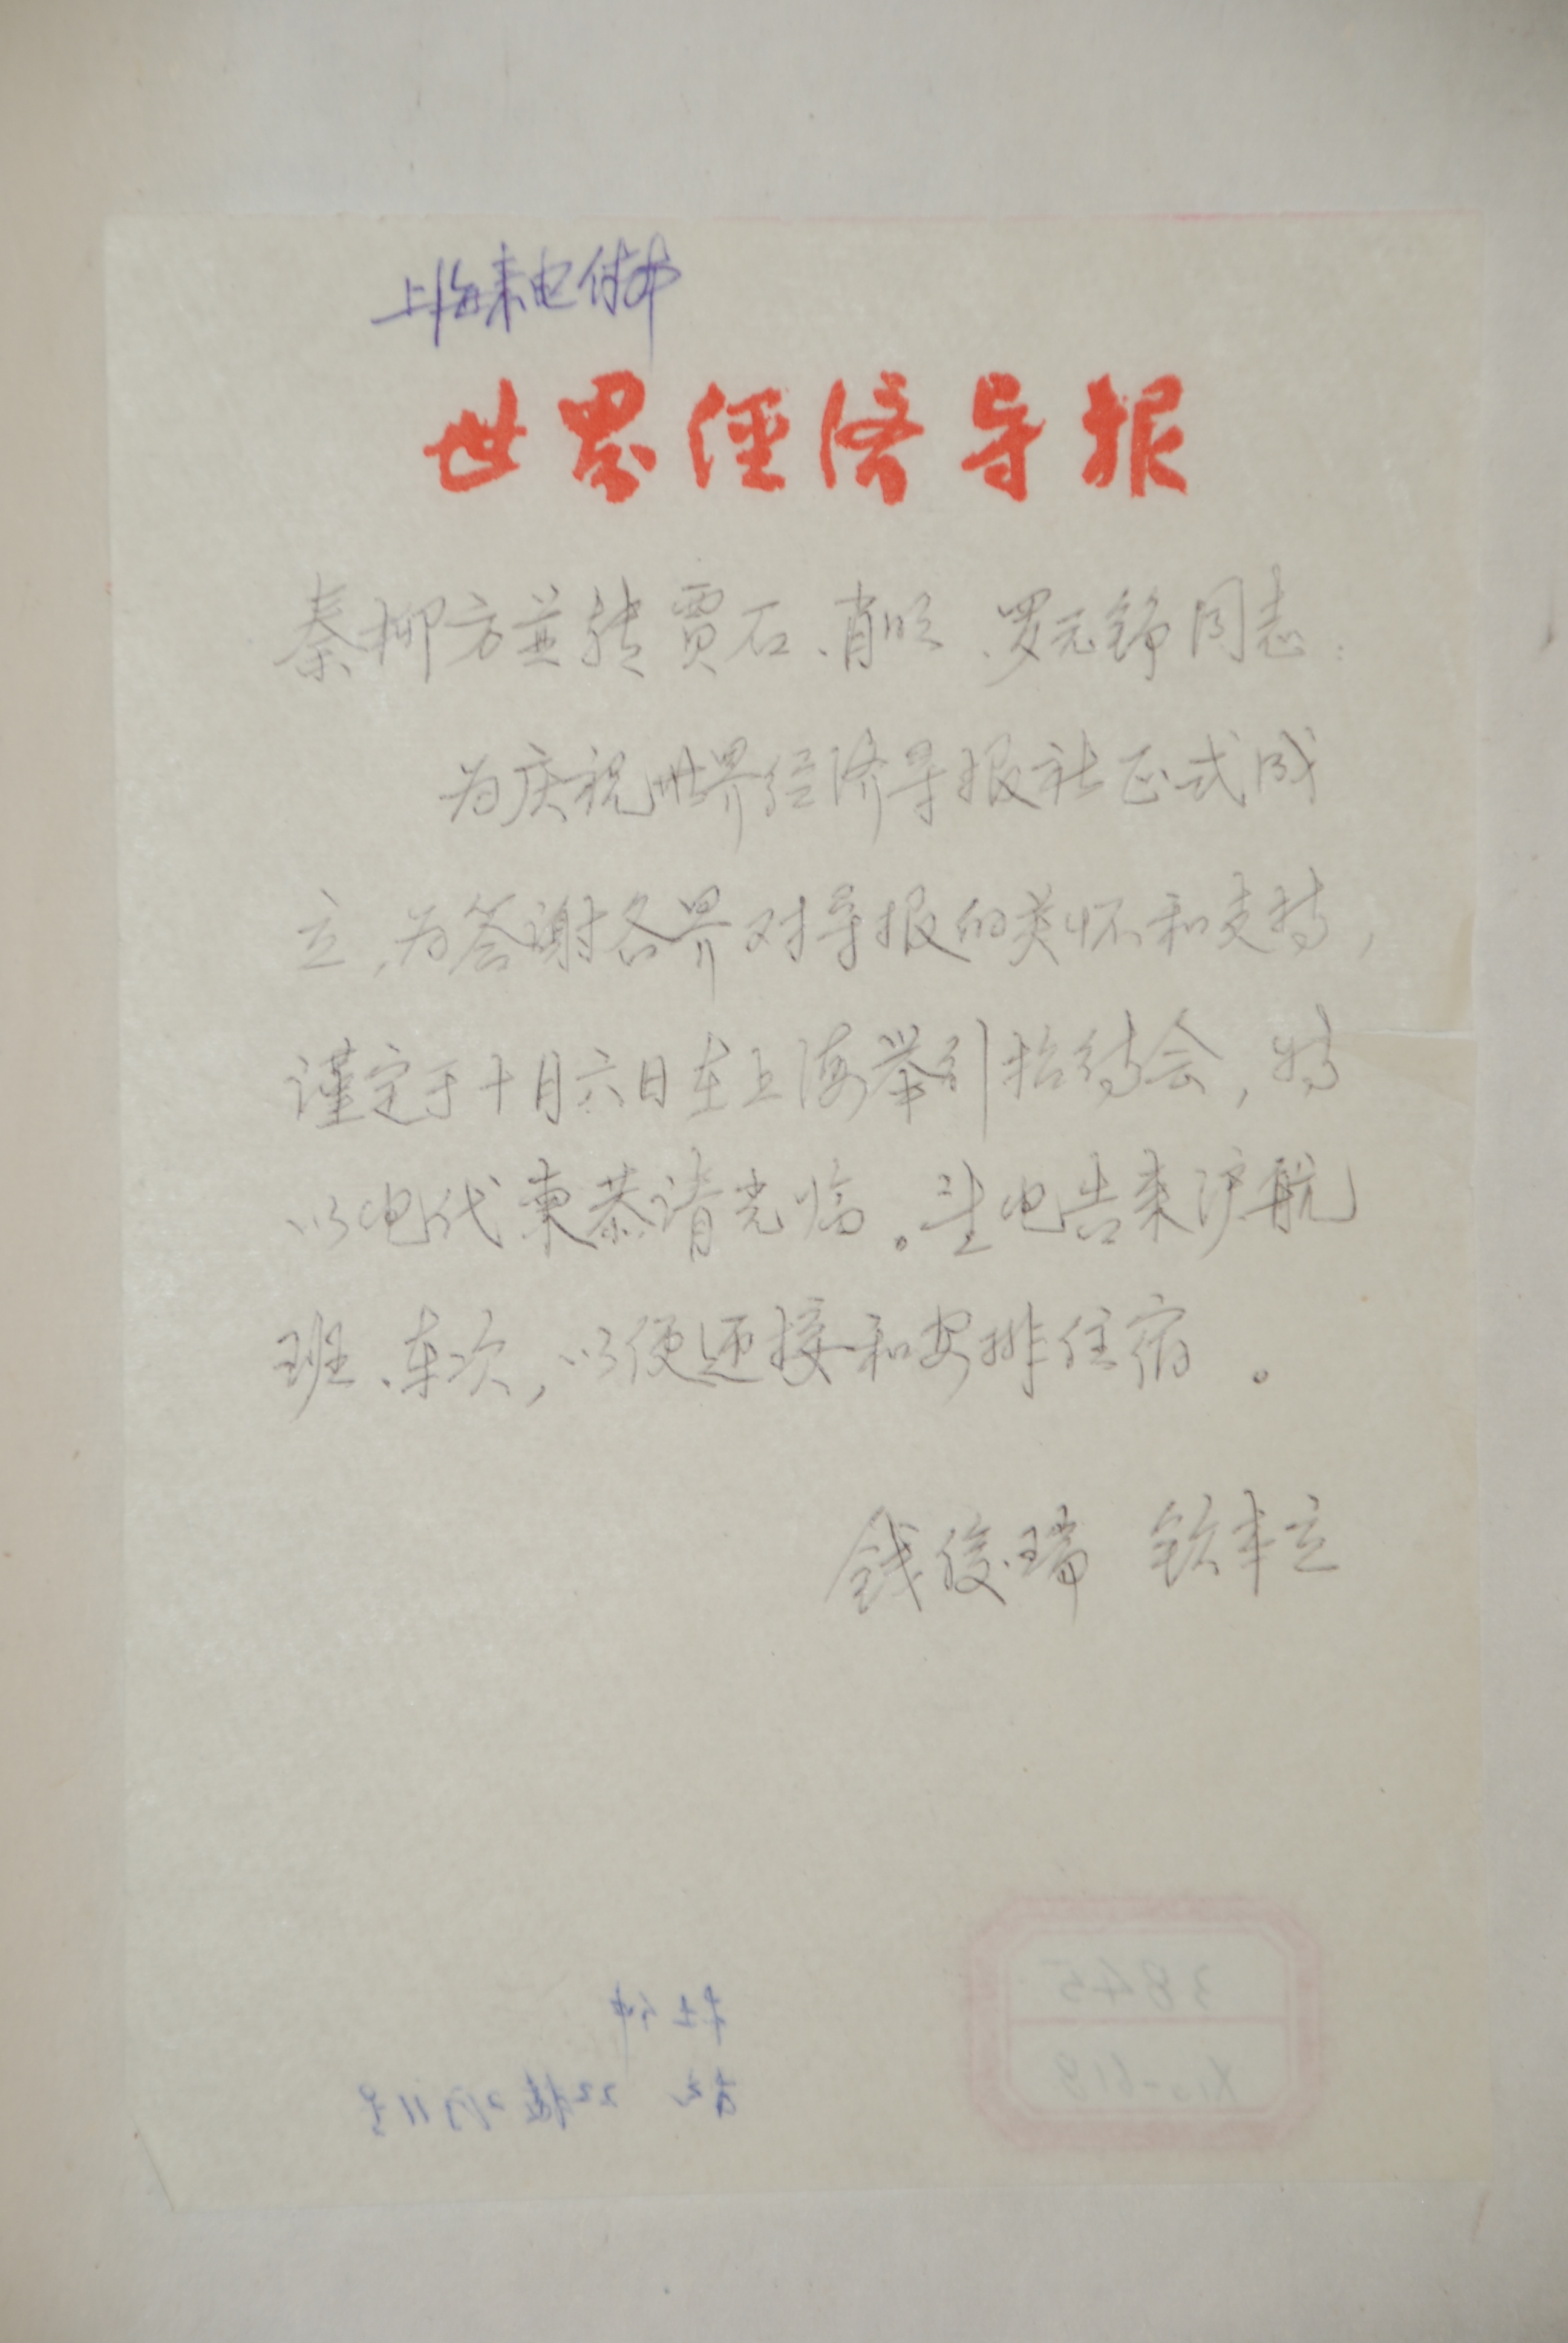 上海来电付本
世界经济导报
秦柳方並转贾石、肖昕、罗元铮同志：
为庆祝世界经济导报社正式成
立，为答谢各界对导报的关怀和支持，
谨定于十月六日在上海举行招待会，特
以电代柬恭请光临。望电告来沪航
班、车次，以便迎接和安排住宿。
钱俊瑞 钦本立
3845